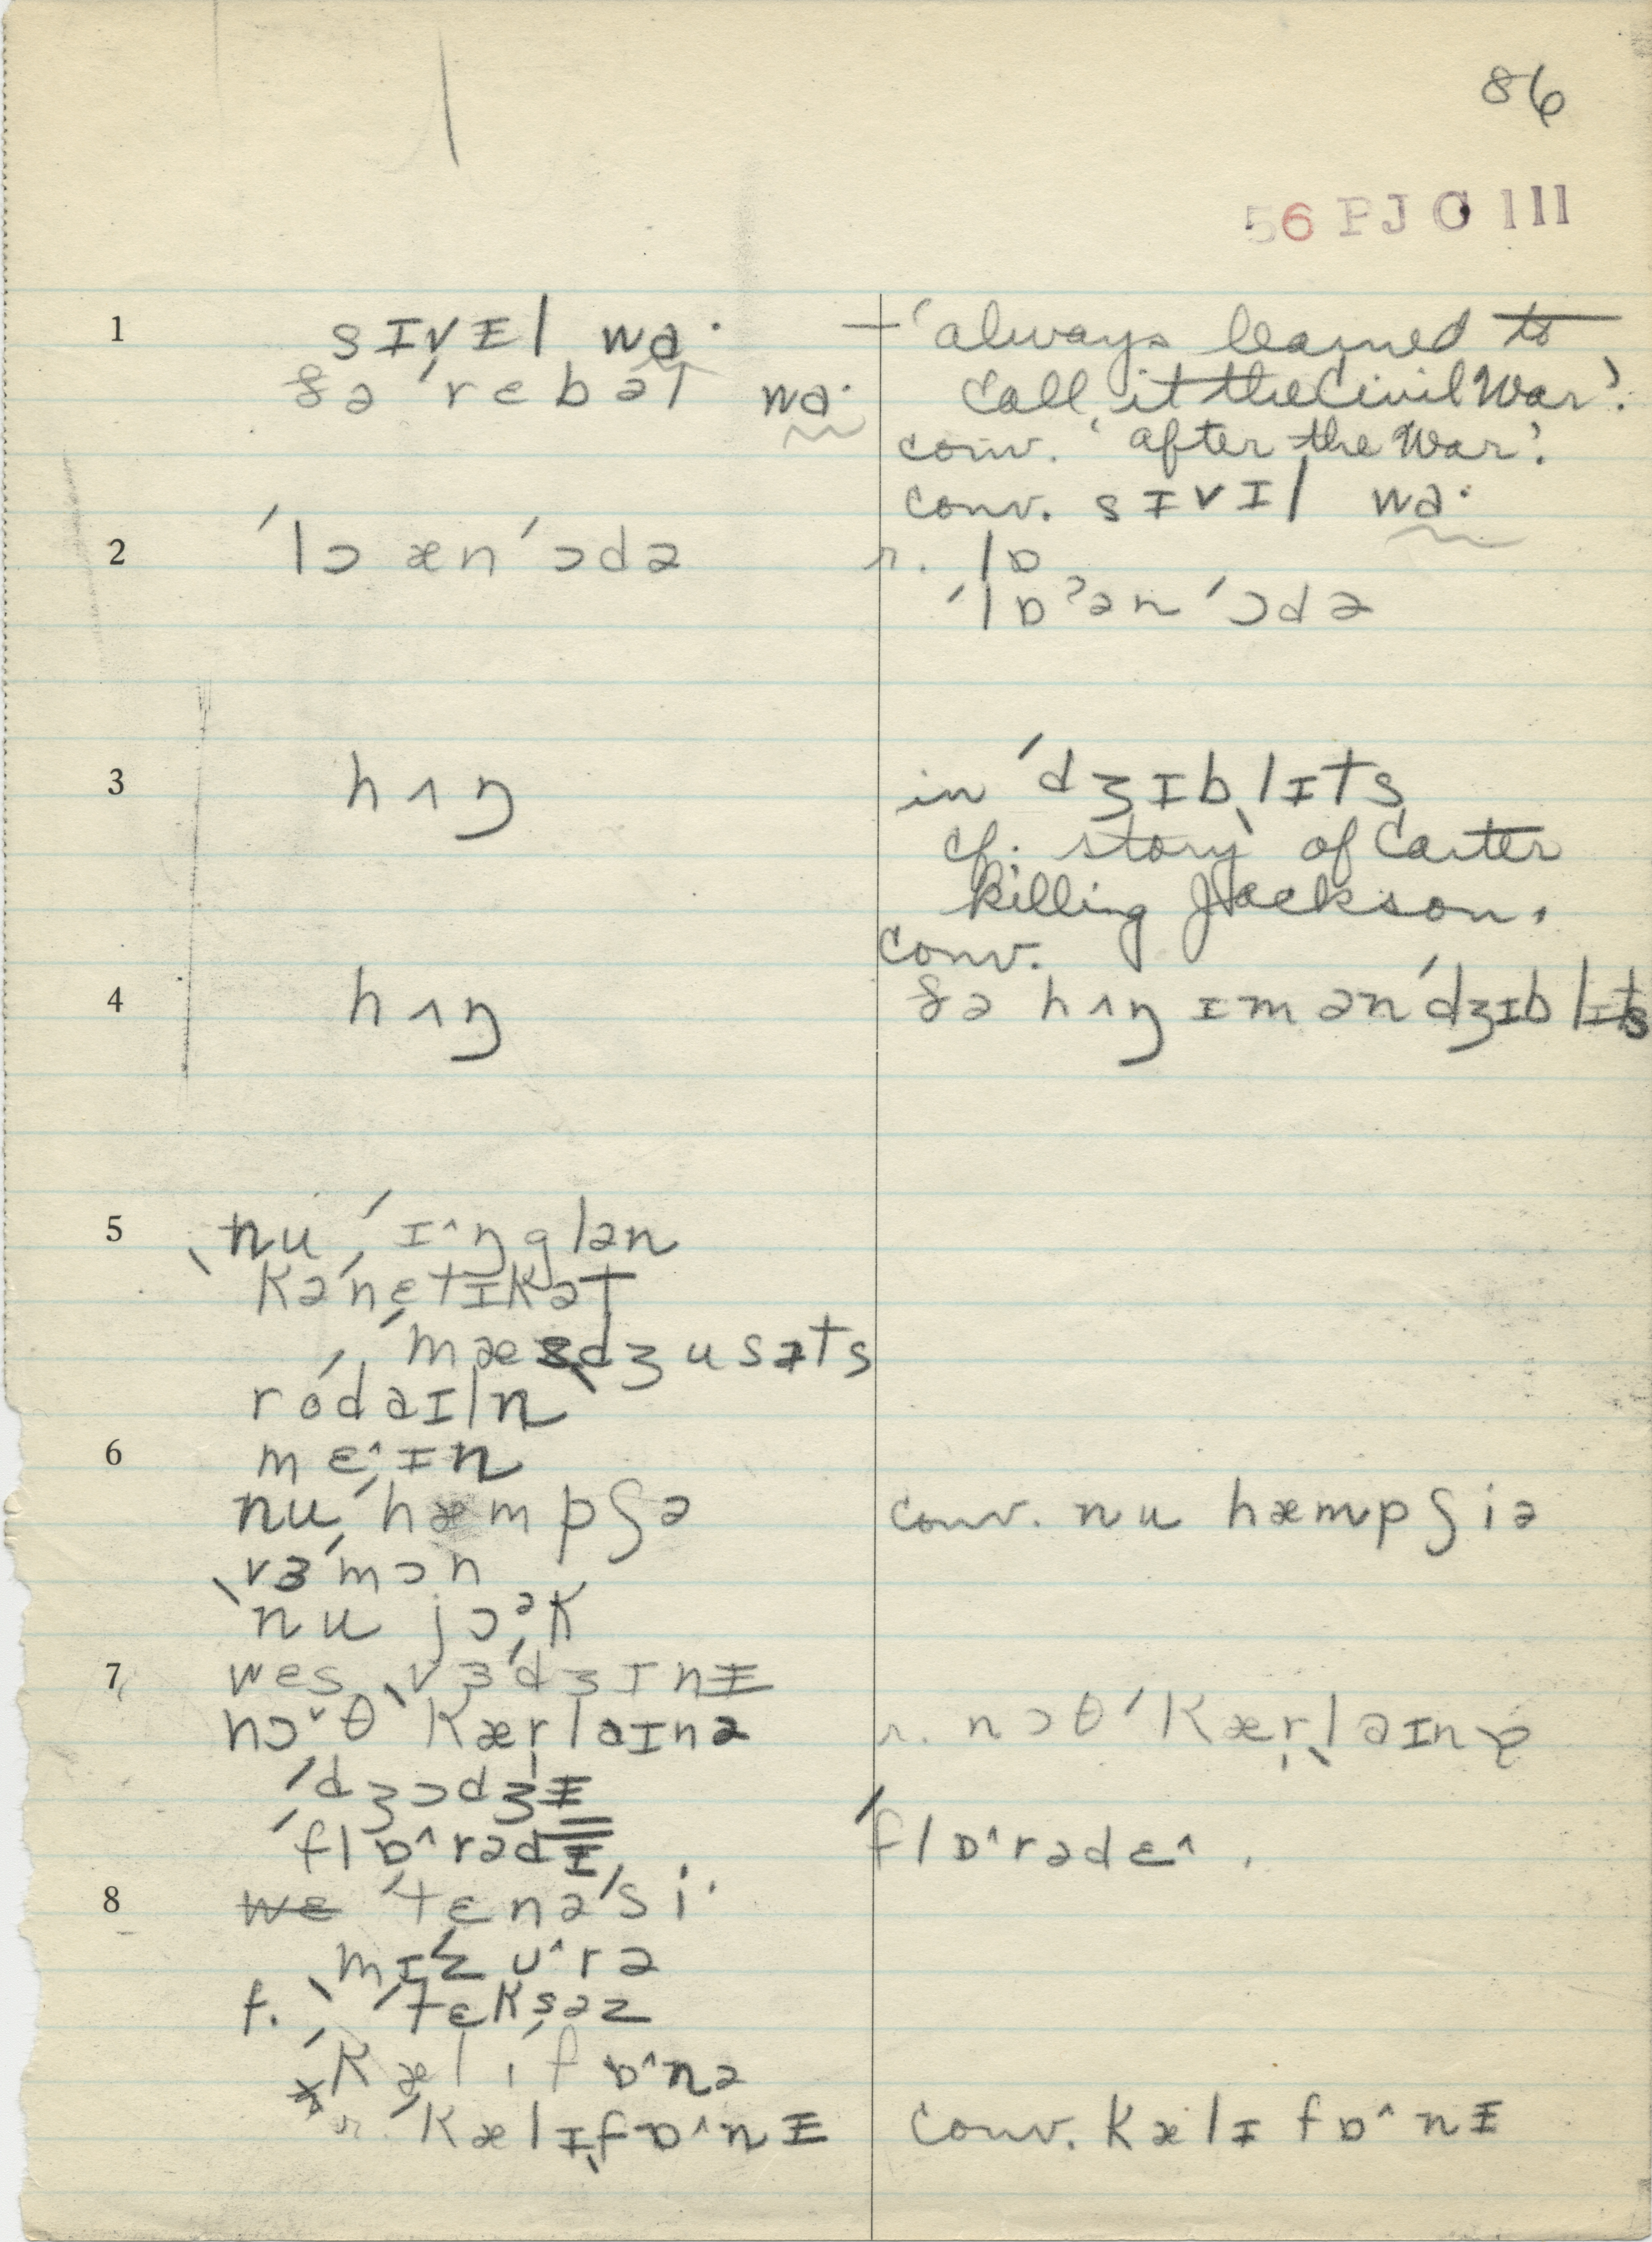 86
56 PJC 111
1 sɪvɪ̵l wɑ·
ðə ˈrebəl wɑ·
— 'always learned to
call it the Civil War'.
conv. 'after the War'.
conv. sɪvɪl wɑ·
2 ˈlɔ æn ˈɔdə
r. lɒ
ˈlɒˀən ˈɔdə
3 hʌŋ
in ˈdʒɪbˌlɪts
cf. story of Carter
killing Jackson.
conv.
4 hʌŋ
ðə hʌŋ ɪm ən ˈdʒɪblɪts
5 ˌnu ˈɪ^ŋglən
kəˈnɛtɪkət
ˈmæsˌdʒusəts
roˈdaɪln
6 mɛ^ɪn
nu ˈhæmpʃə
conv. nu hæmpʃiə
vɜˈmɔn
ˌnu ˈjɔək
7 wes ˌvɜˈdʒɪnɪ̵
nɔˇθ ˌkærˈlaɪnə
r. nɔθ ˈkærˌlaɪnə
ˈdʒɔdʒɪ̵
ˈflɒ^rədɪ̵
ˈflɒ^rədɛ^.
8 ˈtɛnəˈsi·
mɪˈzʊ^rə
f. ˈtɛksəz
ˌkælɪˈfɒ^nə
r. ˈkælɪˌfɒ^nɪ̵
conv. kælɪfɒ^nɪ̵